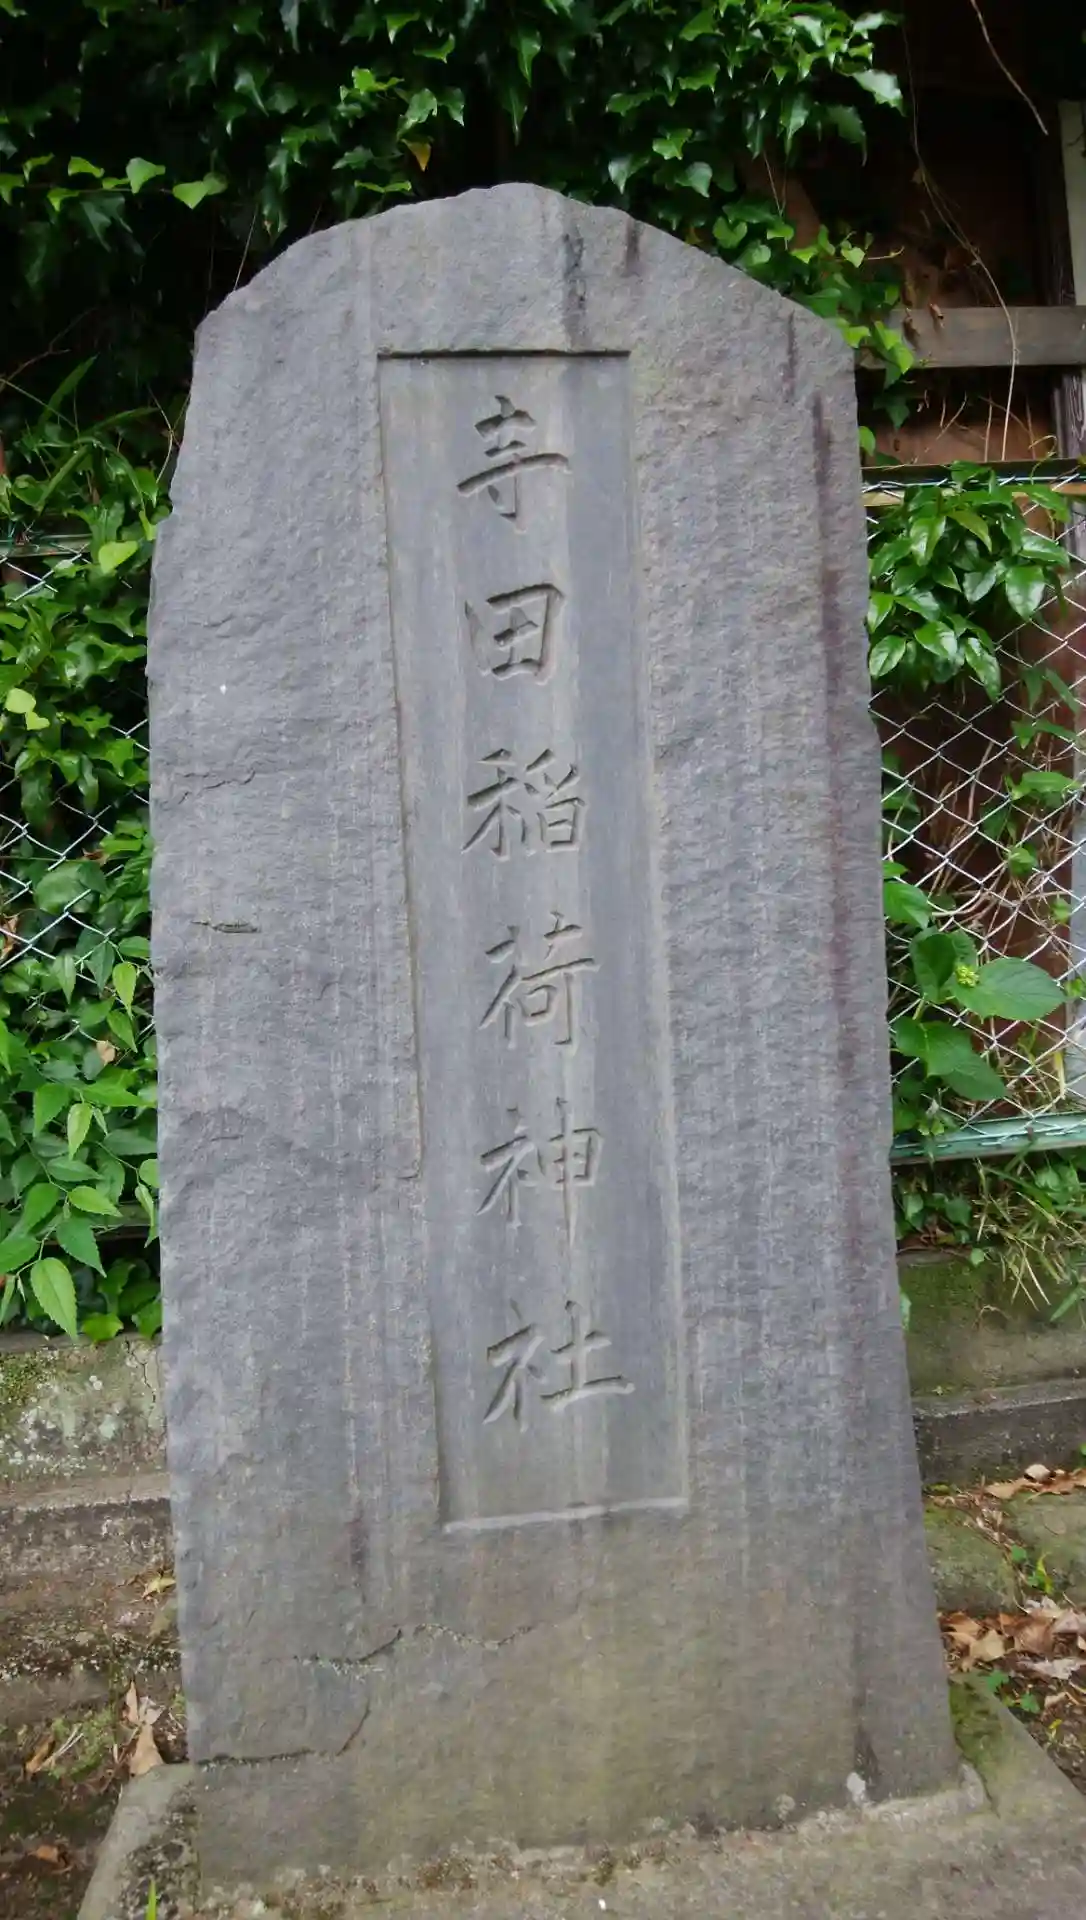 寺田稲荷神社